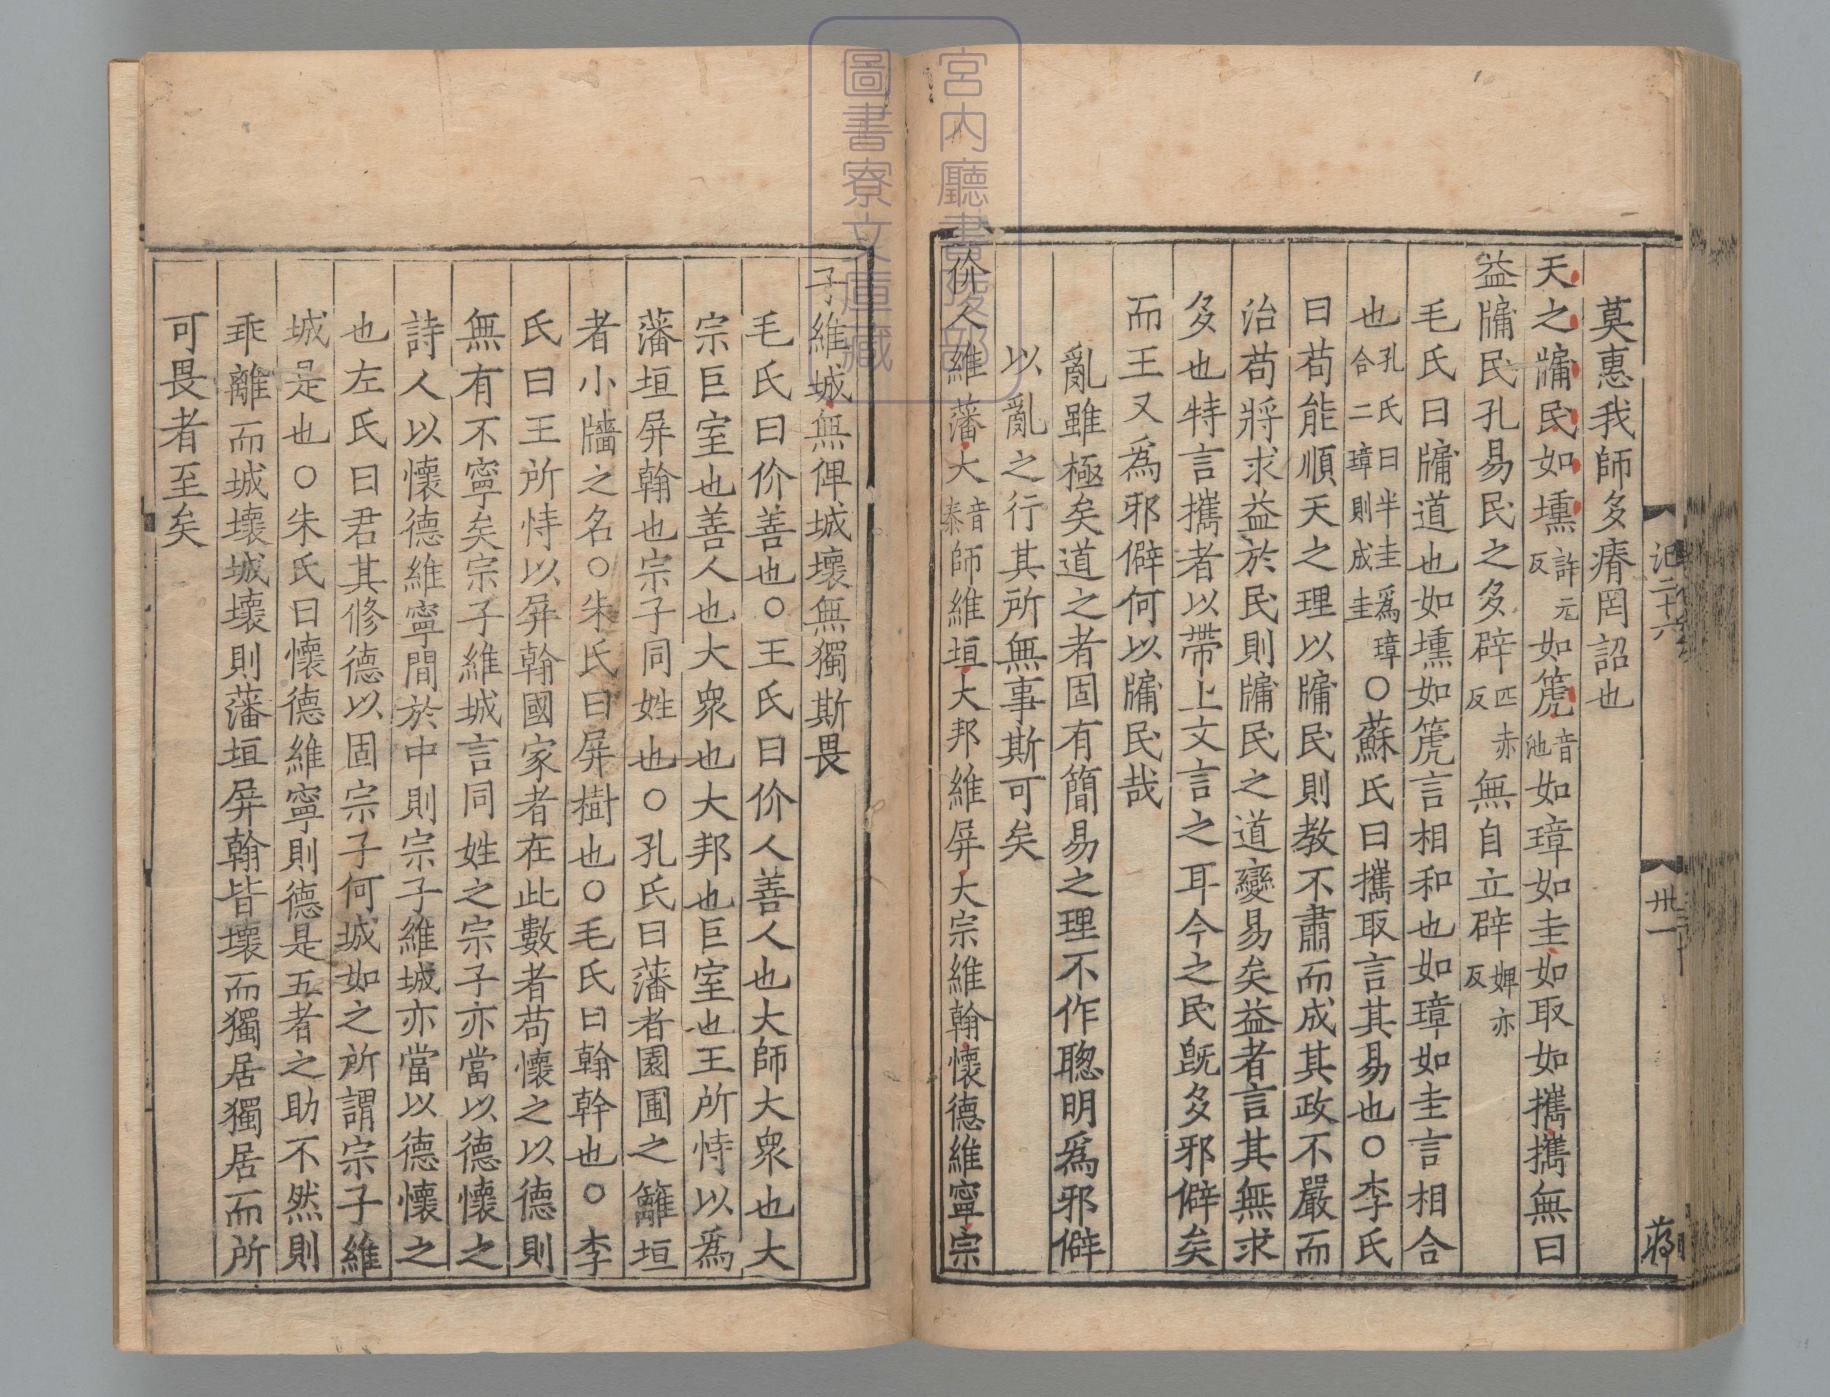 莫惠我師多瘠罔詔也
天之牖民如壎許元反如篪音池如璋如圭如取如攜攜無曰
益牖民孔易民之多辟匹赤反無自立辟婢亦反
毛氏曰牖道也如壎如篪言相和也如璋如圭言相合
也孔氏曰半圭為璋合二璋則成圭○蘇氏曰攜取言其易也○李氏
曰苟能順天之理以牖民則教不肅而成其政不嚴而
治苟將求益於民則牖民之道變易矣益者言其無求
多也特言攜者以帶上文言之耳今之民旣多邪僻矣
而王又為邪僻何以牖民哉
亂雖極矣道之者固有簡易之理不作聰明為邪僻
以亂之行其所無事斯可矣
价人維藩大音泰師維垣大邦維屏大宗維翰懷德維寧宗
子維城無俾城壞無獨斯畏
毛氏曰价善也○王氏曰价人善人也大師大衆也大
宗巨室也善人也大衆也大邦也巨室也王所恃以為
藩垣屏翰也宗子同姓也○孔氏曰藩者園圃之籬垣
者小牆之名○朱氏曰屏樹也○毛氏曰翰幹也○李
氏曰王所恃以屏翰國家者在此數者苟懷之以德則
無有不寧矣宗子維城言同姓之宗子亦當以德懷之
詩人以懷德維寧間於中則宗子維城亦當以德懷之
也左氏曰君其修德以固宗子何城如之所謂宗子維
城是也○朱氏曰懷德維寧則德是五者之助不然則
乖離而城壞城壞則藩垣屏翰皆壞而獨居獨居而所
可畏者至矣
記二十六
卅一
蔣
宮内廳書陵部
圖書寮文庫藏